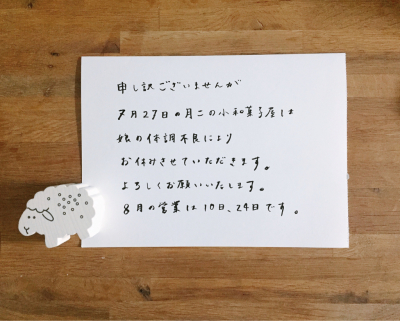 申し訳ございませんが
7月27日の月この小和菓子屋は
娘の体調不良により
お休みさせていただきます。
よろしくお願いいたします。
8月の営業は10日、24日です。